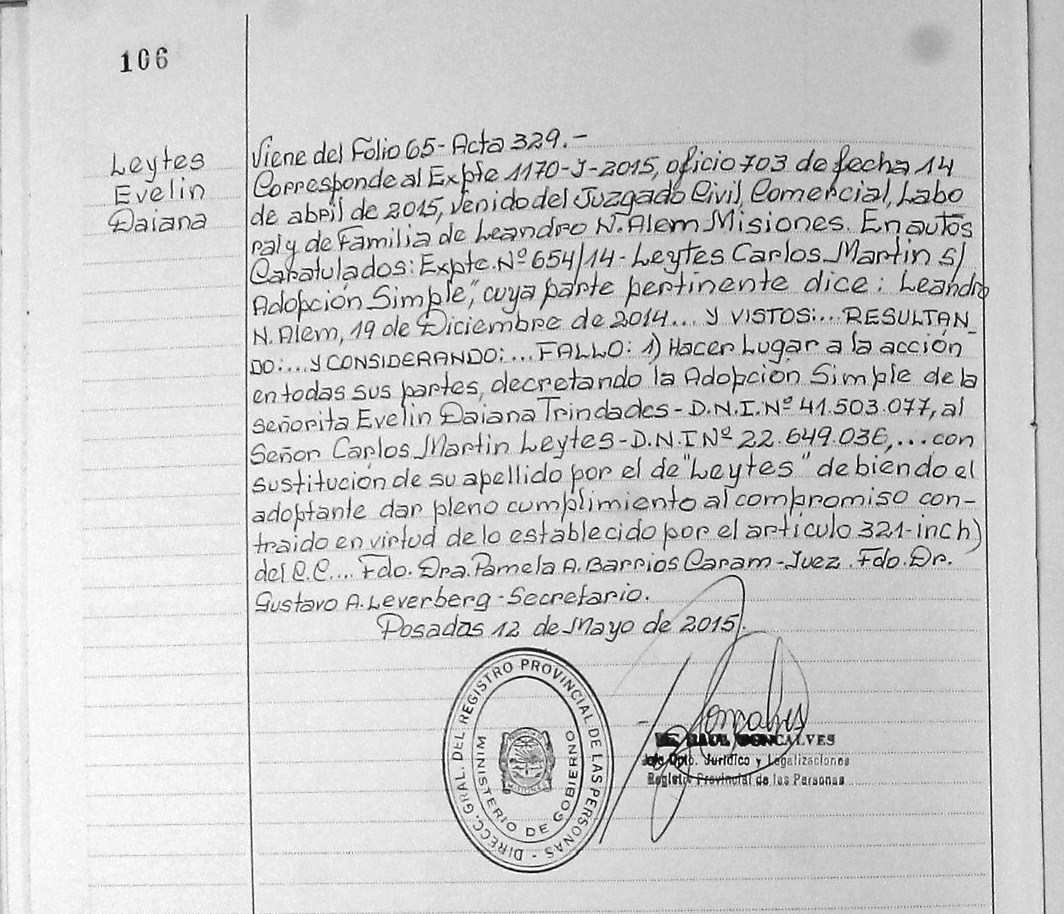 106
Leytes
Evelin
Daiana
Viene del Folio 65- Acta 329.-
Corresponde al Expte 1170-J-2015, oficio 703 de fecha 14
de abril de 2015, venido del Juzgado Civil, Comercial, Labo
ral y de Familia de Leandro N. Alem Misiones. En autos
Caratulados: Expte. Nº 654/14- Leytes Carlos Martin s/
Adopción Simple", cuya parte pertinente dice: Leandro
N. Alem, 19 de Diciembre de 2014... Y VISTOS:... RESULTAN_
DO:... Y CONSIDERANDO:... FALLO: 1) Hacer Lugar a la acción
en todas sus partes, decretando la Adopción Simple de la
señorita Evelin Daiana Trindades- D.N.I. Nº 41.503.077, al
Señor Carlos Martin Leytes- D.N.I Nº 22.649.036,... con
sustitución de su apellido por el de "Leytes" debiendo el
adoptante dar pleno cumplimiento al compromiso con-
traido en virtud de lo establecido por el artículo 321-inc h)
del C.C... Fdo. Dra. Pamela A. Barrios Caram- Juez. Fdo. Dr.
Gustavo A. Leverberg- Secretario.
Posadas 12 de Mayo de 2015.
DIRECC. GRAL. DEL REGISTRO PROVINCIAL DE LAS PERSONAS -
MINISTERIO DE GOBIERNO
Goncalves
RAUL GONCALVES
Jefe Dpto. Jurídico y Legalizaciones
Registro Provincial de las Personas